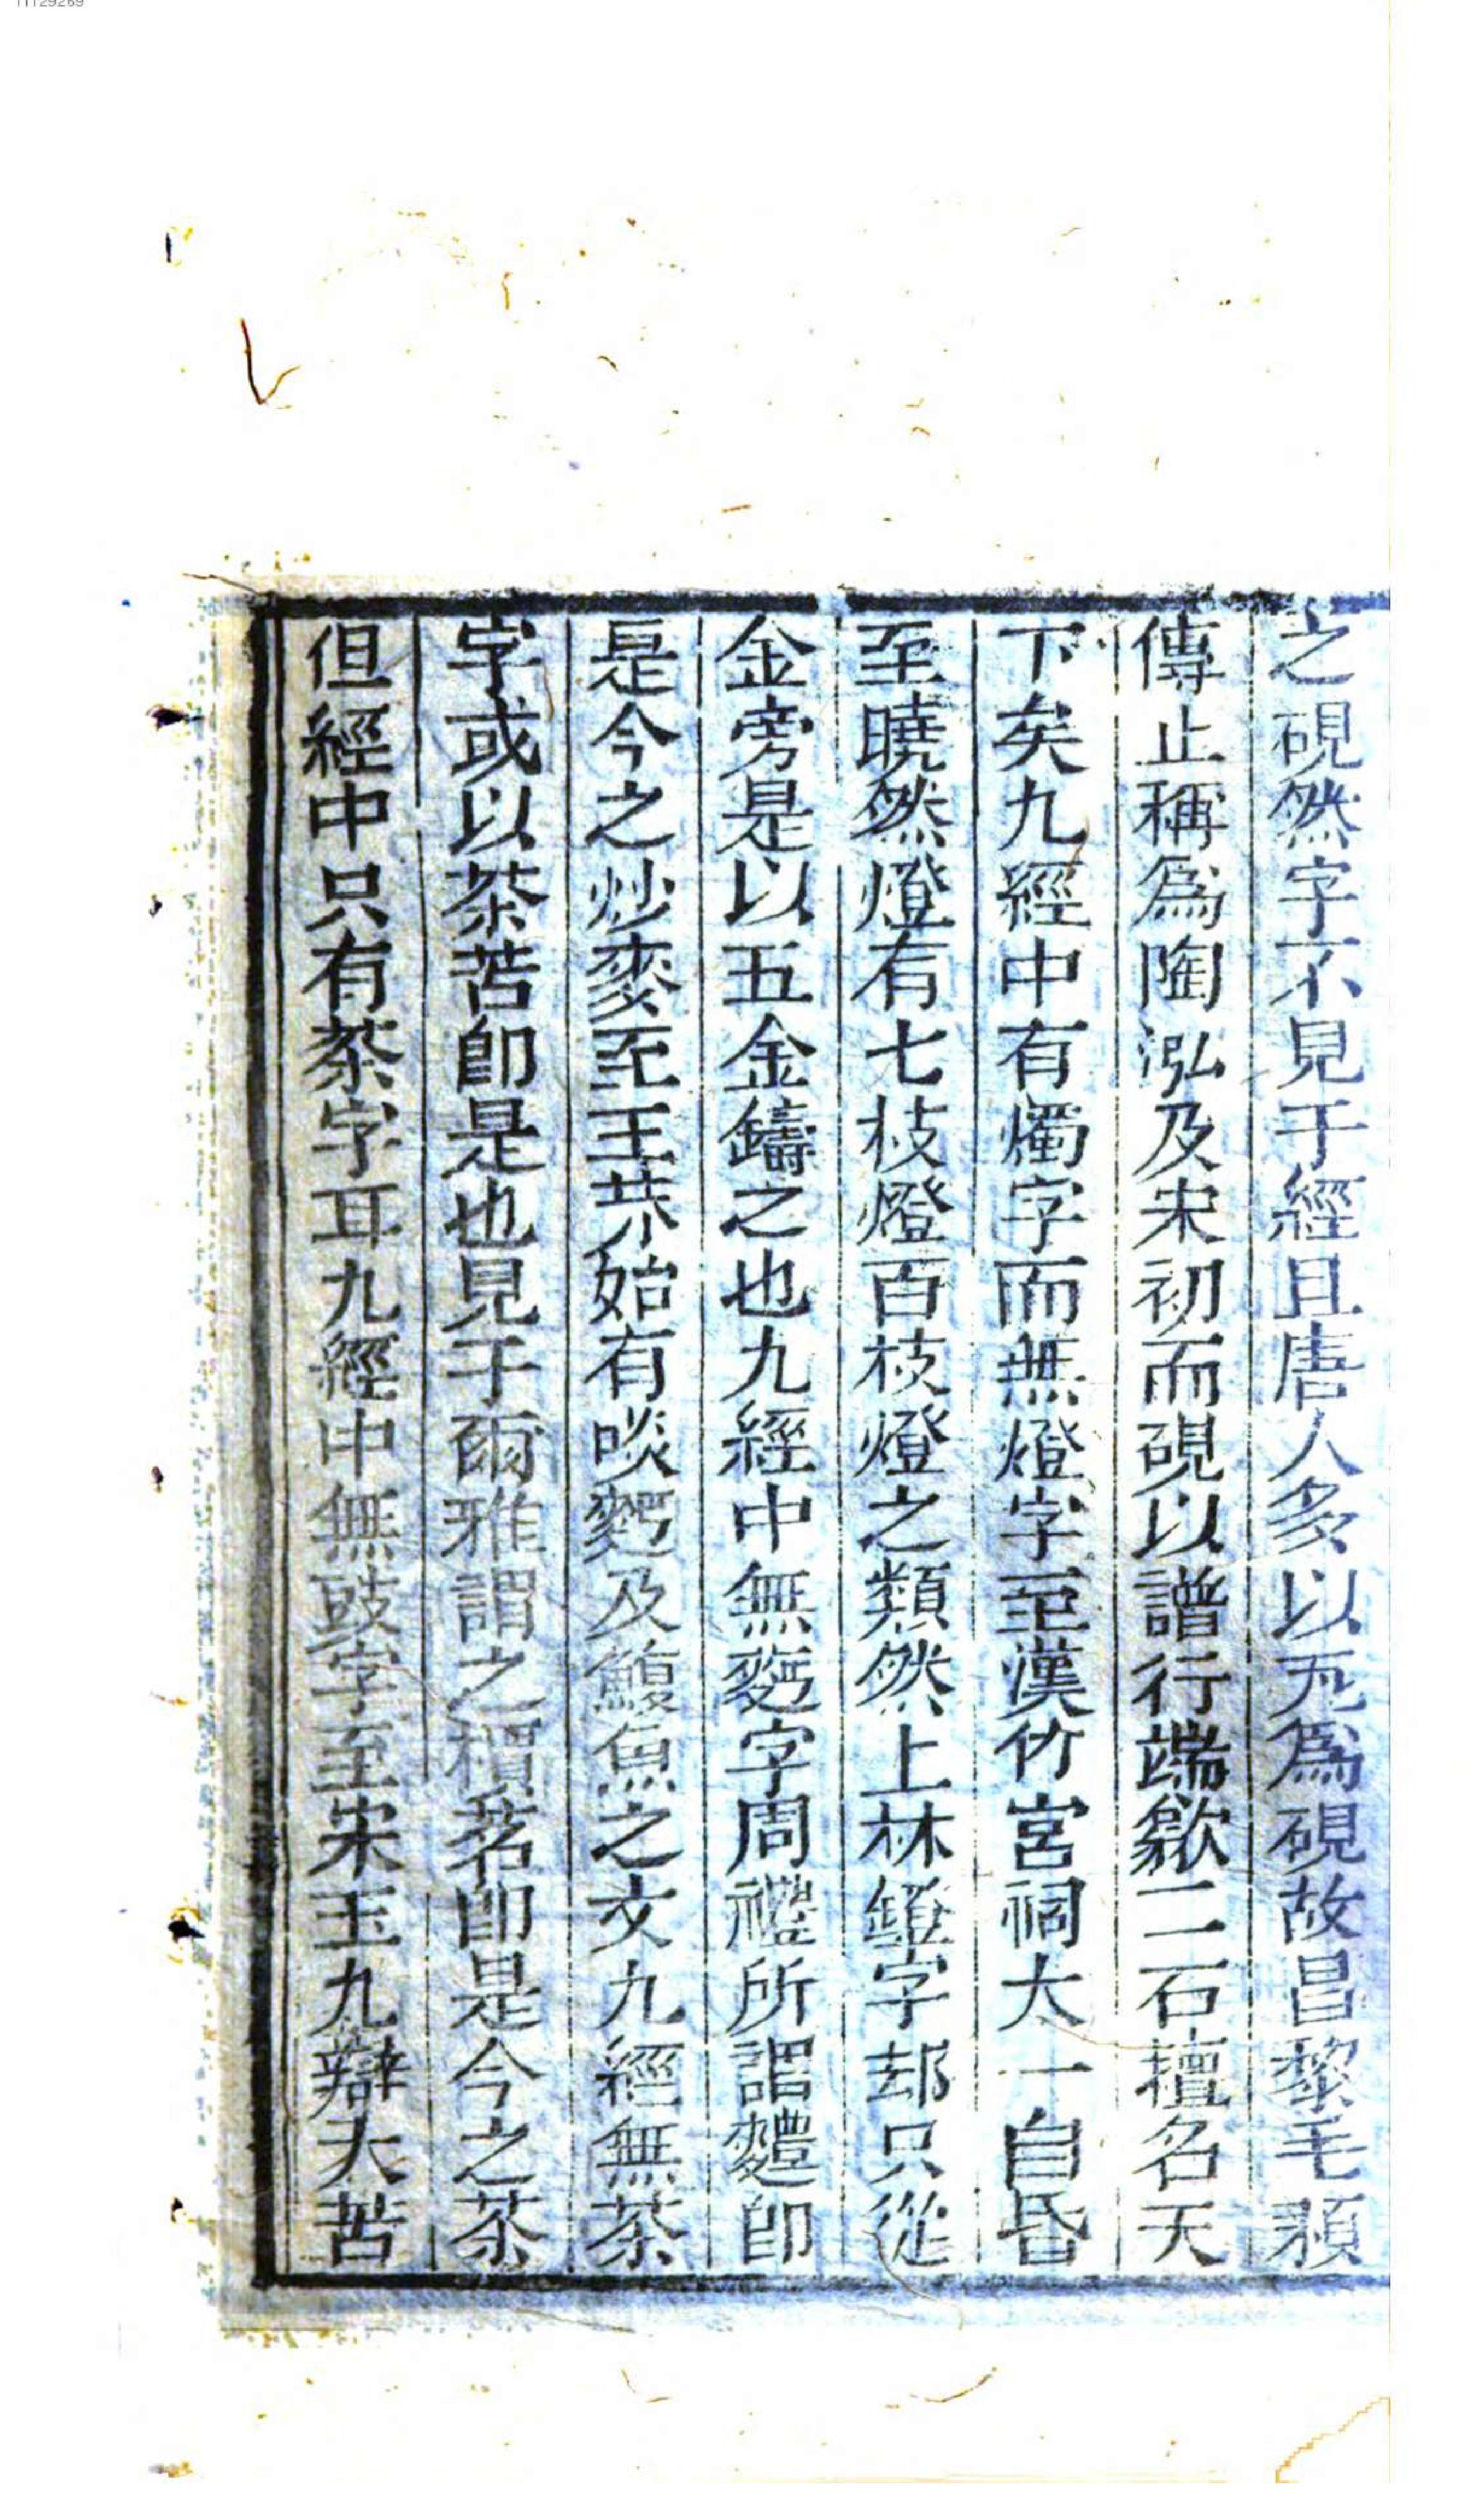 之硯然字不見于經且唐人多以瓦爲硯故昌黎毛穎
傳止稱爲陶泓及宋初而硯以譜行端歙二石擅名天
下矣九經中有燭字而無燈字至漢竹宮祠太一自昏
至曉然燈有七枝燈百枝燈之類然上林鐙字却只從
金旁是以五金鑄之也九經中無麵字周禮所謂麷即
是今之炒麥至王莽始有啖麵及鰒魚之文九經無茶
字或以荼苦即是也見于爾雅謂之檟茗即是今之茶
但經中只有荼字耳九經中無豉字至宋玉九辯大苦